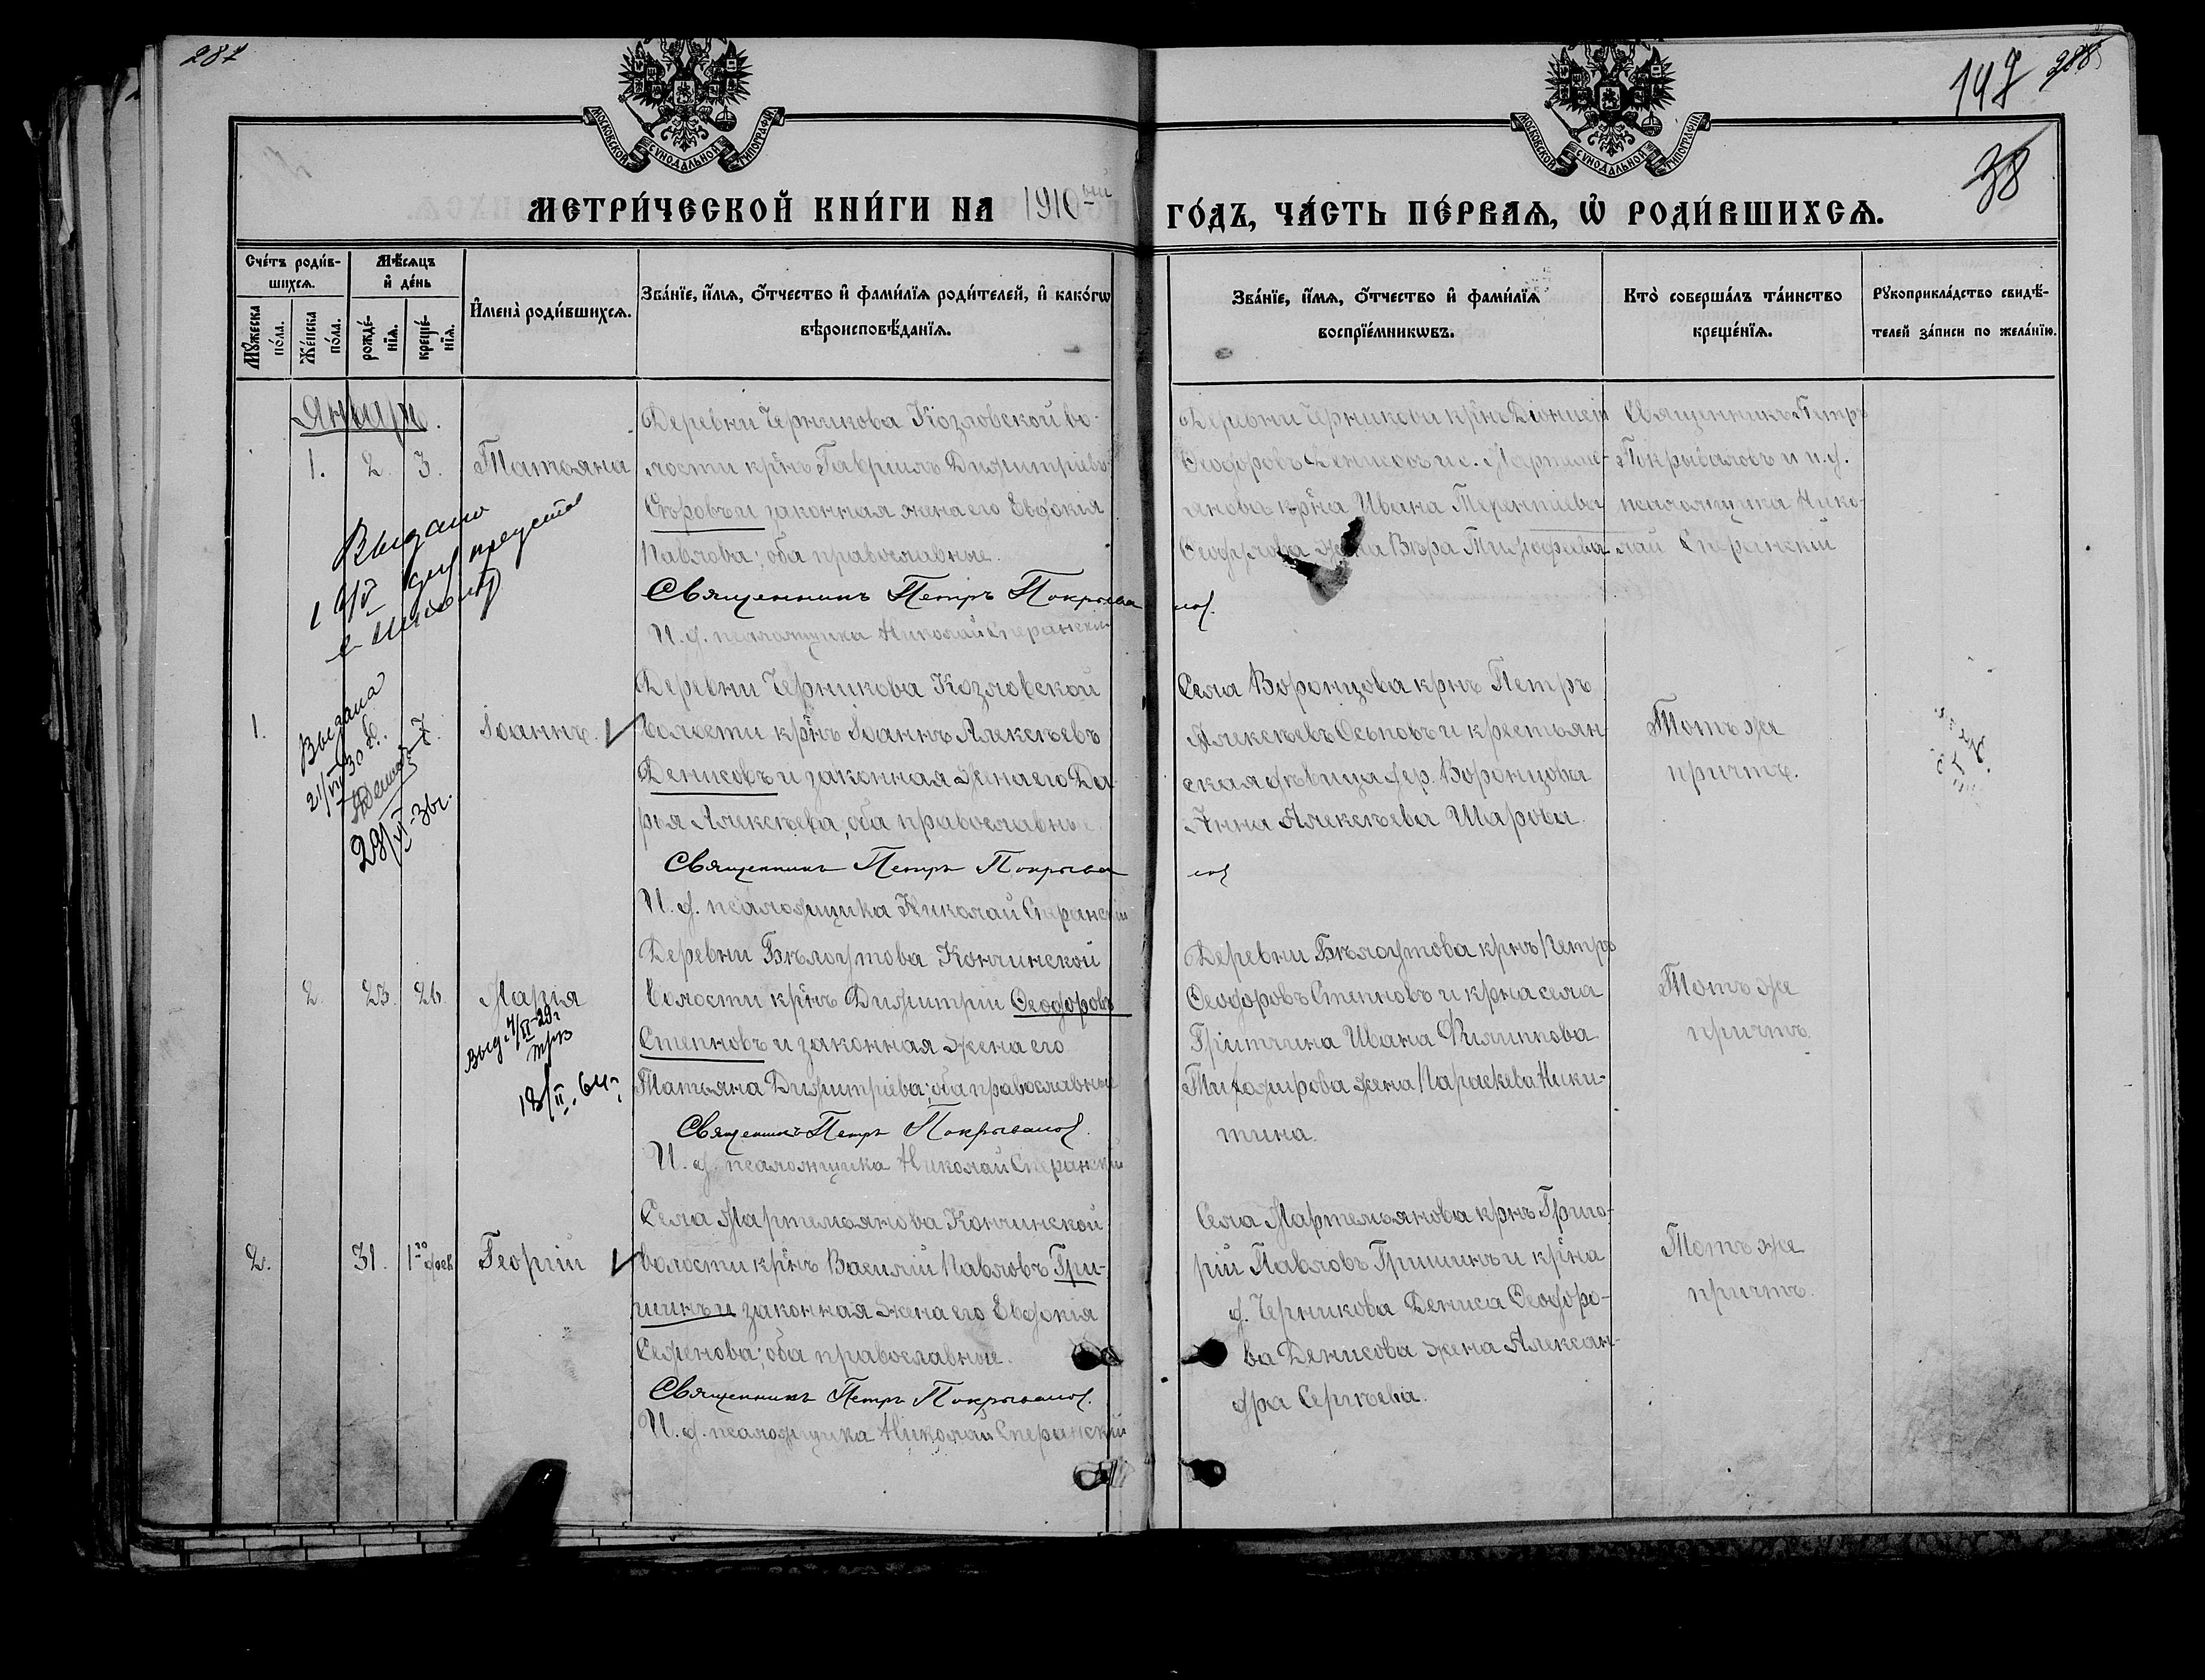 287
147 288
38
МОСКОВСКОЙ СУНОДАЛЬНОЙ ТИПОГРАФІИ
МОСКОВСКОЙ СУНОДАЛЬНОЙ ТИПОГРАФІИ
МЕТРИ́ЧЕСКОЙ КНИ́ГИ НА 1910ый ГО́ДЪ, ЧА́СТЬ ПЕ́РВАѦ, Ѽ РОДИ́ВШИХСѦ.
Сче́тъ роди́в-
шихсѧ.
Мѣ́сѧцъ
и҆ де́нь
Мꙋ́жеска по́ла.
Же́нска по́ла.
рожде́-
нїѧ.
креще́-
нїѧ.
И҆мена̀ роди́вшихсѧ.
Зва́нїе, и҆́мѧ, ѻ҆́тчество и҆ фами́лїѧ роди́телей, и҆ како́гѡ
вѣроисповѣ́данїѧ.
Зва́нїе, и҆́мѧ, ѻ҆́тчество и҆ фами́лїѧ
воспрїе́мникѡвъ.
Кто̀ соверша́лъ та́инство
креще́нїѧ.
Рꙋкоприкла́дство свидѣ́-
телей за́писи по жела́нїю.
Январь.
1. 2. 3. Татьяна
Деревни Черникова Козловской во-
лости крнъ Гавріилъ Димитріевъ
и законная жена его Евдокія
Павлова; оба православные.
Священникъ Петръ Покрывалов
И. д. псаломщика Николай Сперанскій
Деревни Черникова крнъ Діонисій
Ѳеодоровъ Денисовъ и с. Мартемь-
янова крна Ивана Терентіева
жена Вѣра
Священникъ Петръ
Покрываловъ и и. д.
псаломщика Нико-
лай Сперанскій
Выдано
1. 7. Іоаннъ.
Деревни Черникова Козловской
волости крнъ Іоаннъ Алексѣевъ
Денисовъ и законная жена его Да-
рья Алексѣева; оба православные.
Священникъ Петръ Покрывалов
И. д. псаломщика Николай Сперанскій
Села Воронцова крнъ Петръ
Алексѣевъ Осиповъ и крестьян-
ская дѣвица дер. Воронцова
Анна Алексѣева Шарова.
Тотъ же
причтъ.
Выдана
2. 23. 26. Марія
Деревни Бѣлоутова Кончинской
волости крнъ Димитрій Ѳеодоровъ
Степновъ и законная жена его
Татьяна Димитріева; оба православные
Священникъ Петръ Покрывалов.
И. д. псаломщика Николай Сперанскій
Деревни Бѣлоутова крнъ Петръ
Ѳеодоровъ Степновъ и крна села
Ивана Филиппова
жена Параскева Ники-
тина.
Тотъ же
причтъ.
18/II. 64 г.
2. 31. 1го фев Георгій
Села Мартемьянова Кончинской
волости крнъ Василій Павловъ Гри-
шинъ и законная жена его Евдокія
Семенова; оба православные.
Священникъ Петръ Покрывалов.
И. д. псаломщика Николай Сперанскій
Села Мартемьянова крнъ Григо-
рій Павловъ Гришинъ и крна
д. Черникова Дениса Ѳеодоро-
ва Денисова жена Алексан-
дра Сергѣева.
Тотъ же
причтъ.